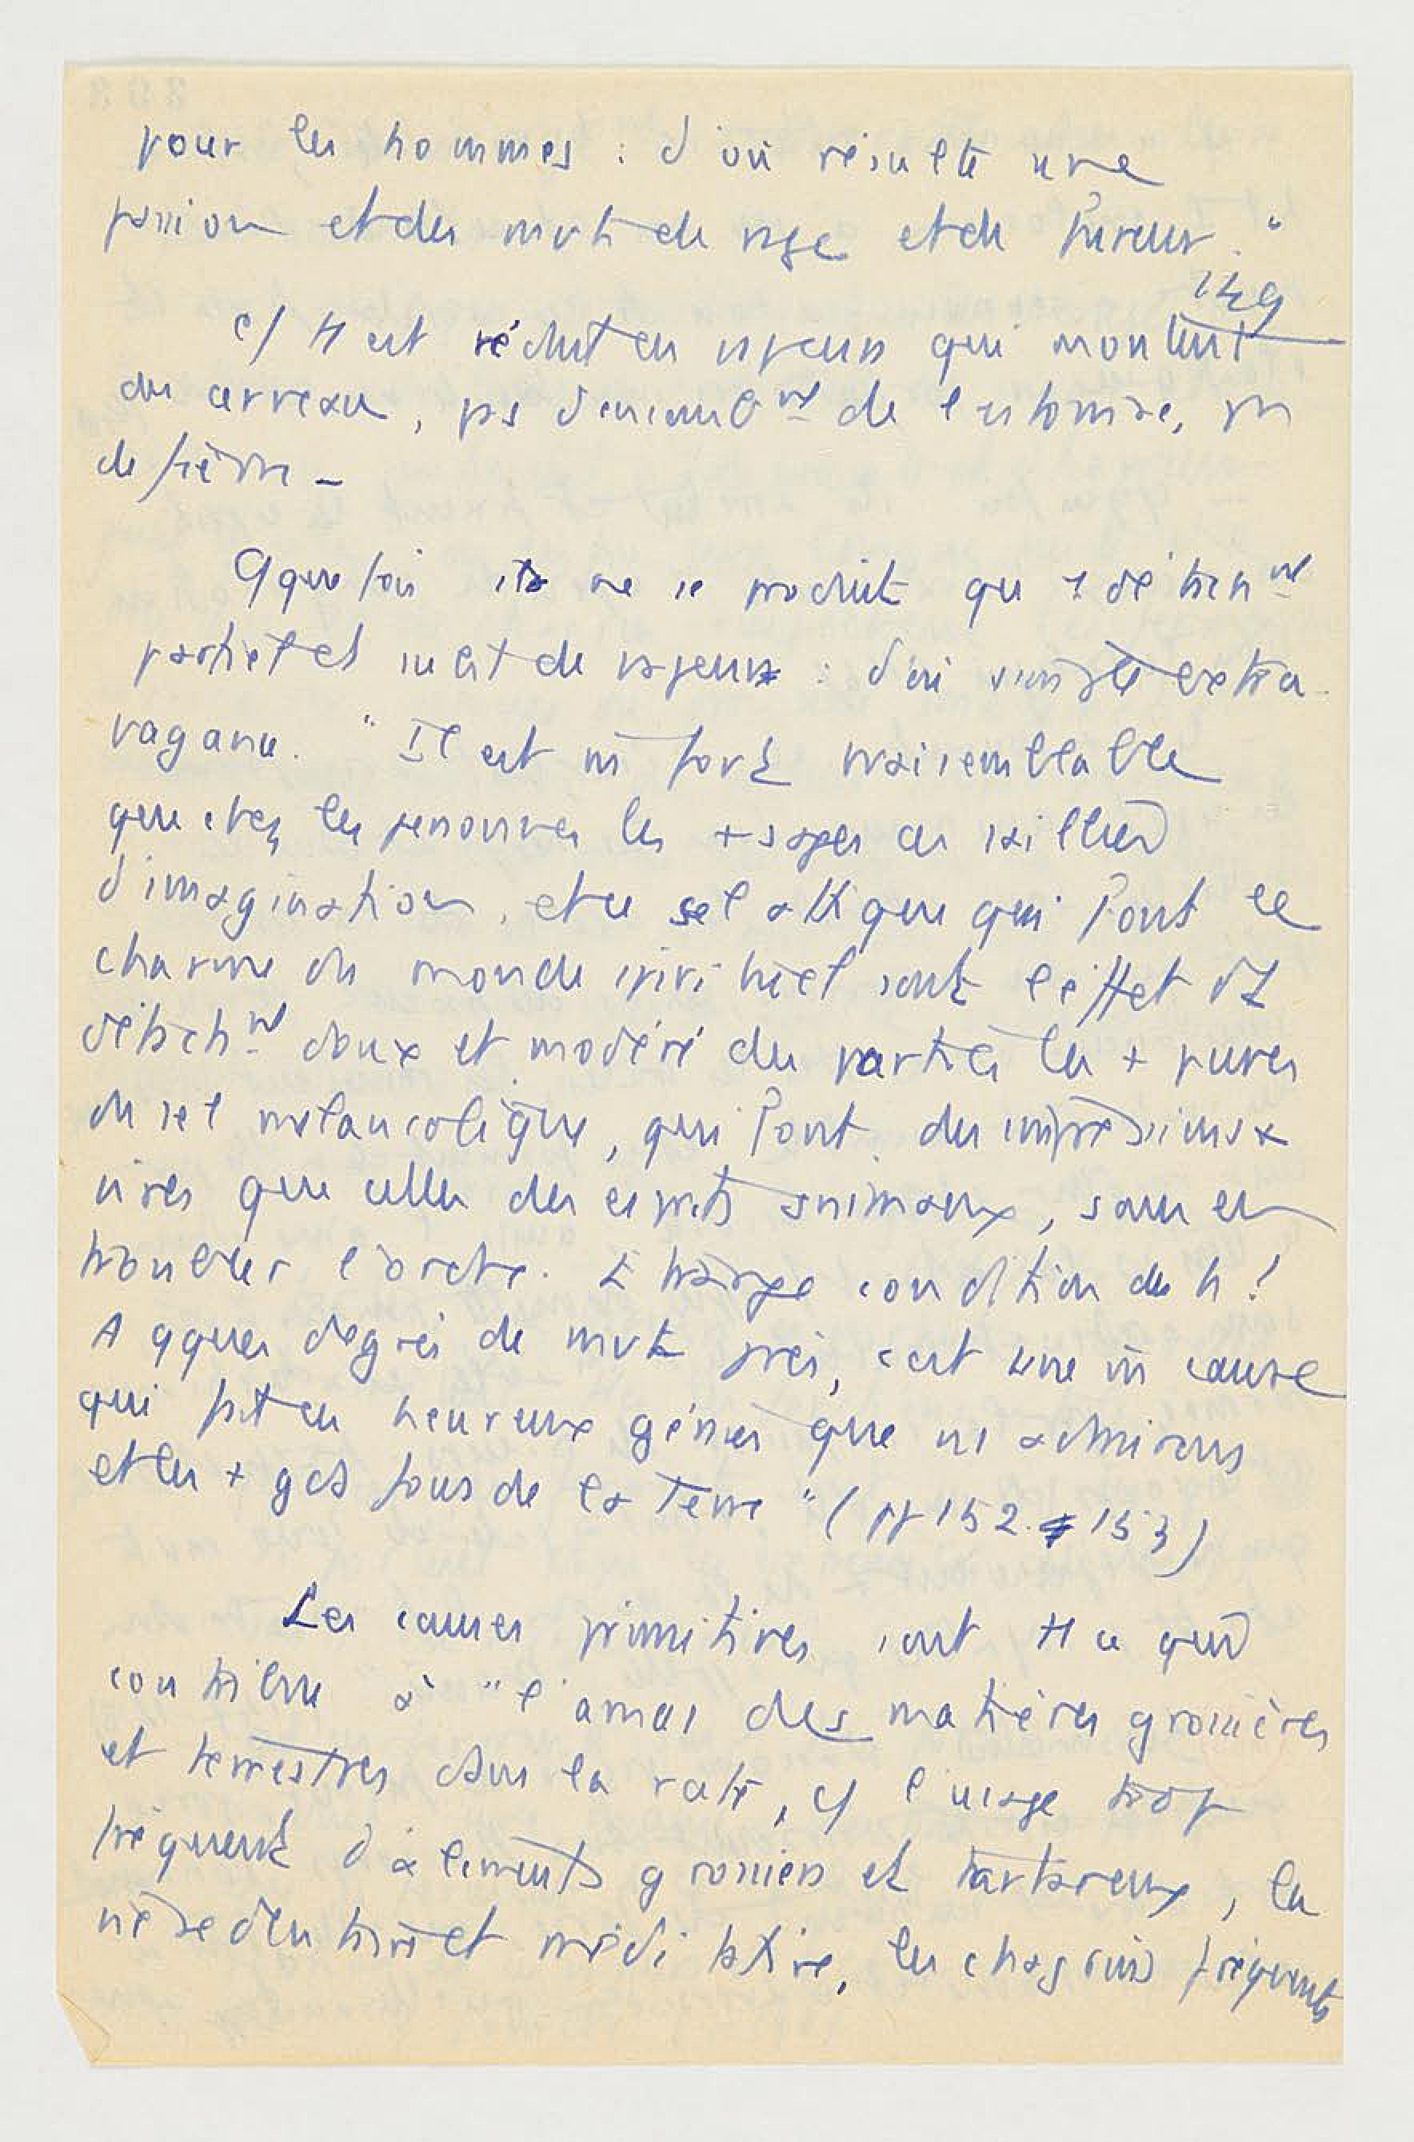 pour les hommes : d'où résulte une
passion et des mvts de rage et de fureur."
149
c/ tt est réduit en vapeurs qui montent
au cerveau, ps d' de l'estomac, ps
de fièvre –
Qquefois il ne se produit qu' 1 détachnt
partiel et subit de vapeurs : d'où simple extra-
vagance. "Il est m̄ fort vraisemblable
que chez les personnes les + sages ces saillies
d'imagination, et ce sel attique qui font le
charme du monde spirituel sont l'effet d'1
détachnt doux et modéré des parties les + pures
du sel mélancolique, qui font des impressions +
vives que celles des esprits animaux, sans en
troubler l'ordre. Etrange condition des h !
A qques degrés de mvt près, c'est une m̄ cause
qui fait ces heureux génies que ns admirons
et les + gds fous de la terre" (pp 152-153)
Les causes primitives sont tt ce qui
contribue à "l'amas des matières grossières
et terrestres dans la rate, cf l'usage trop
fréquent d'aliments grossiers et tartareux, la
vie sédentaire et méditative, les chagrins fréquents